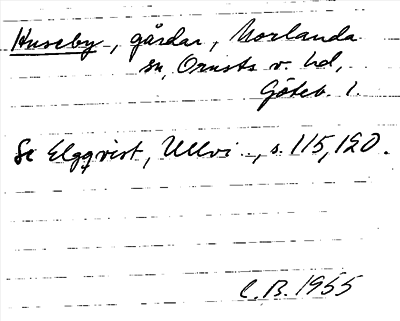 Huseby, gårdar, Morlanda
sn, Orusts v. hd,
Göteb. l.
Se Elgqvist, Ullvi.., s. 115, 120.
C.B. 1955